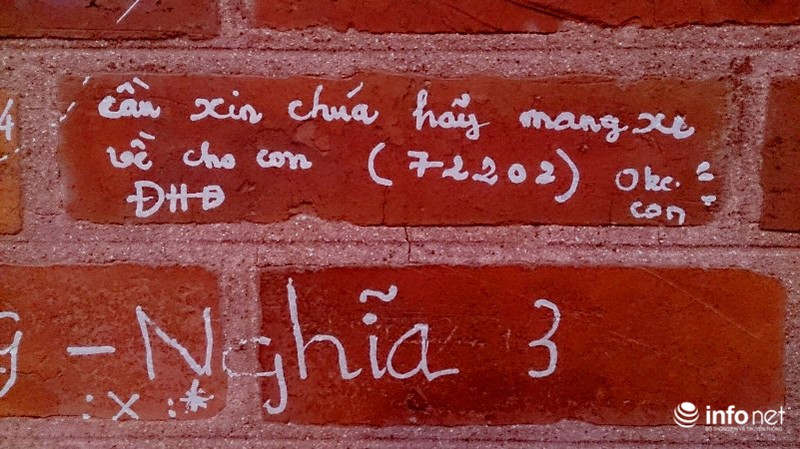 cầu xin chúa hãy mang xe
về cho con (72202) Oke.
ĐHĐ con
g - Nghĩa 3
:x :*
infonet
BỘ THÔNG TIN VÀ TRUYỀN THÔNG